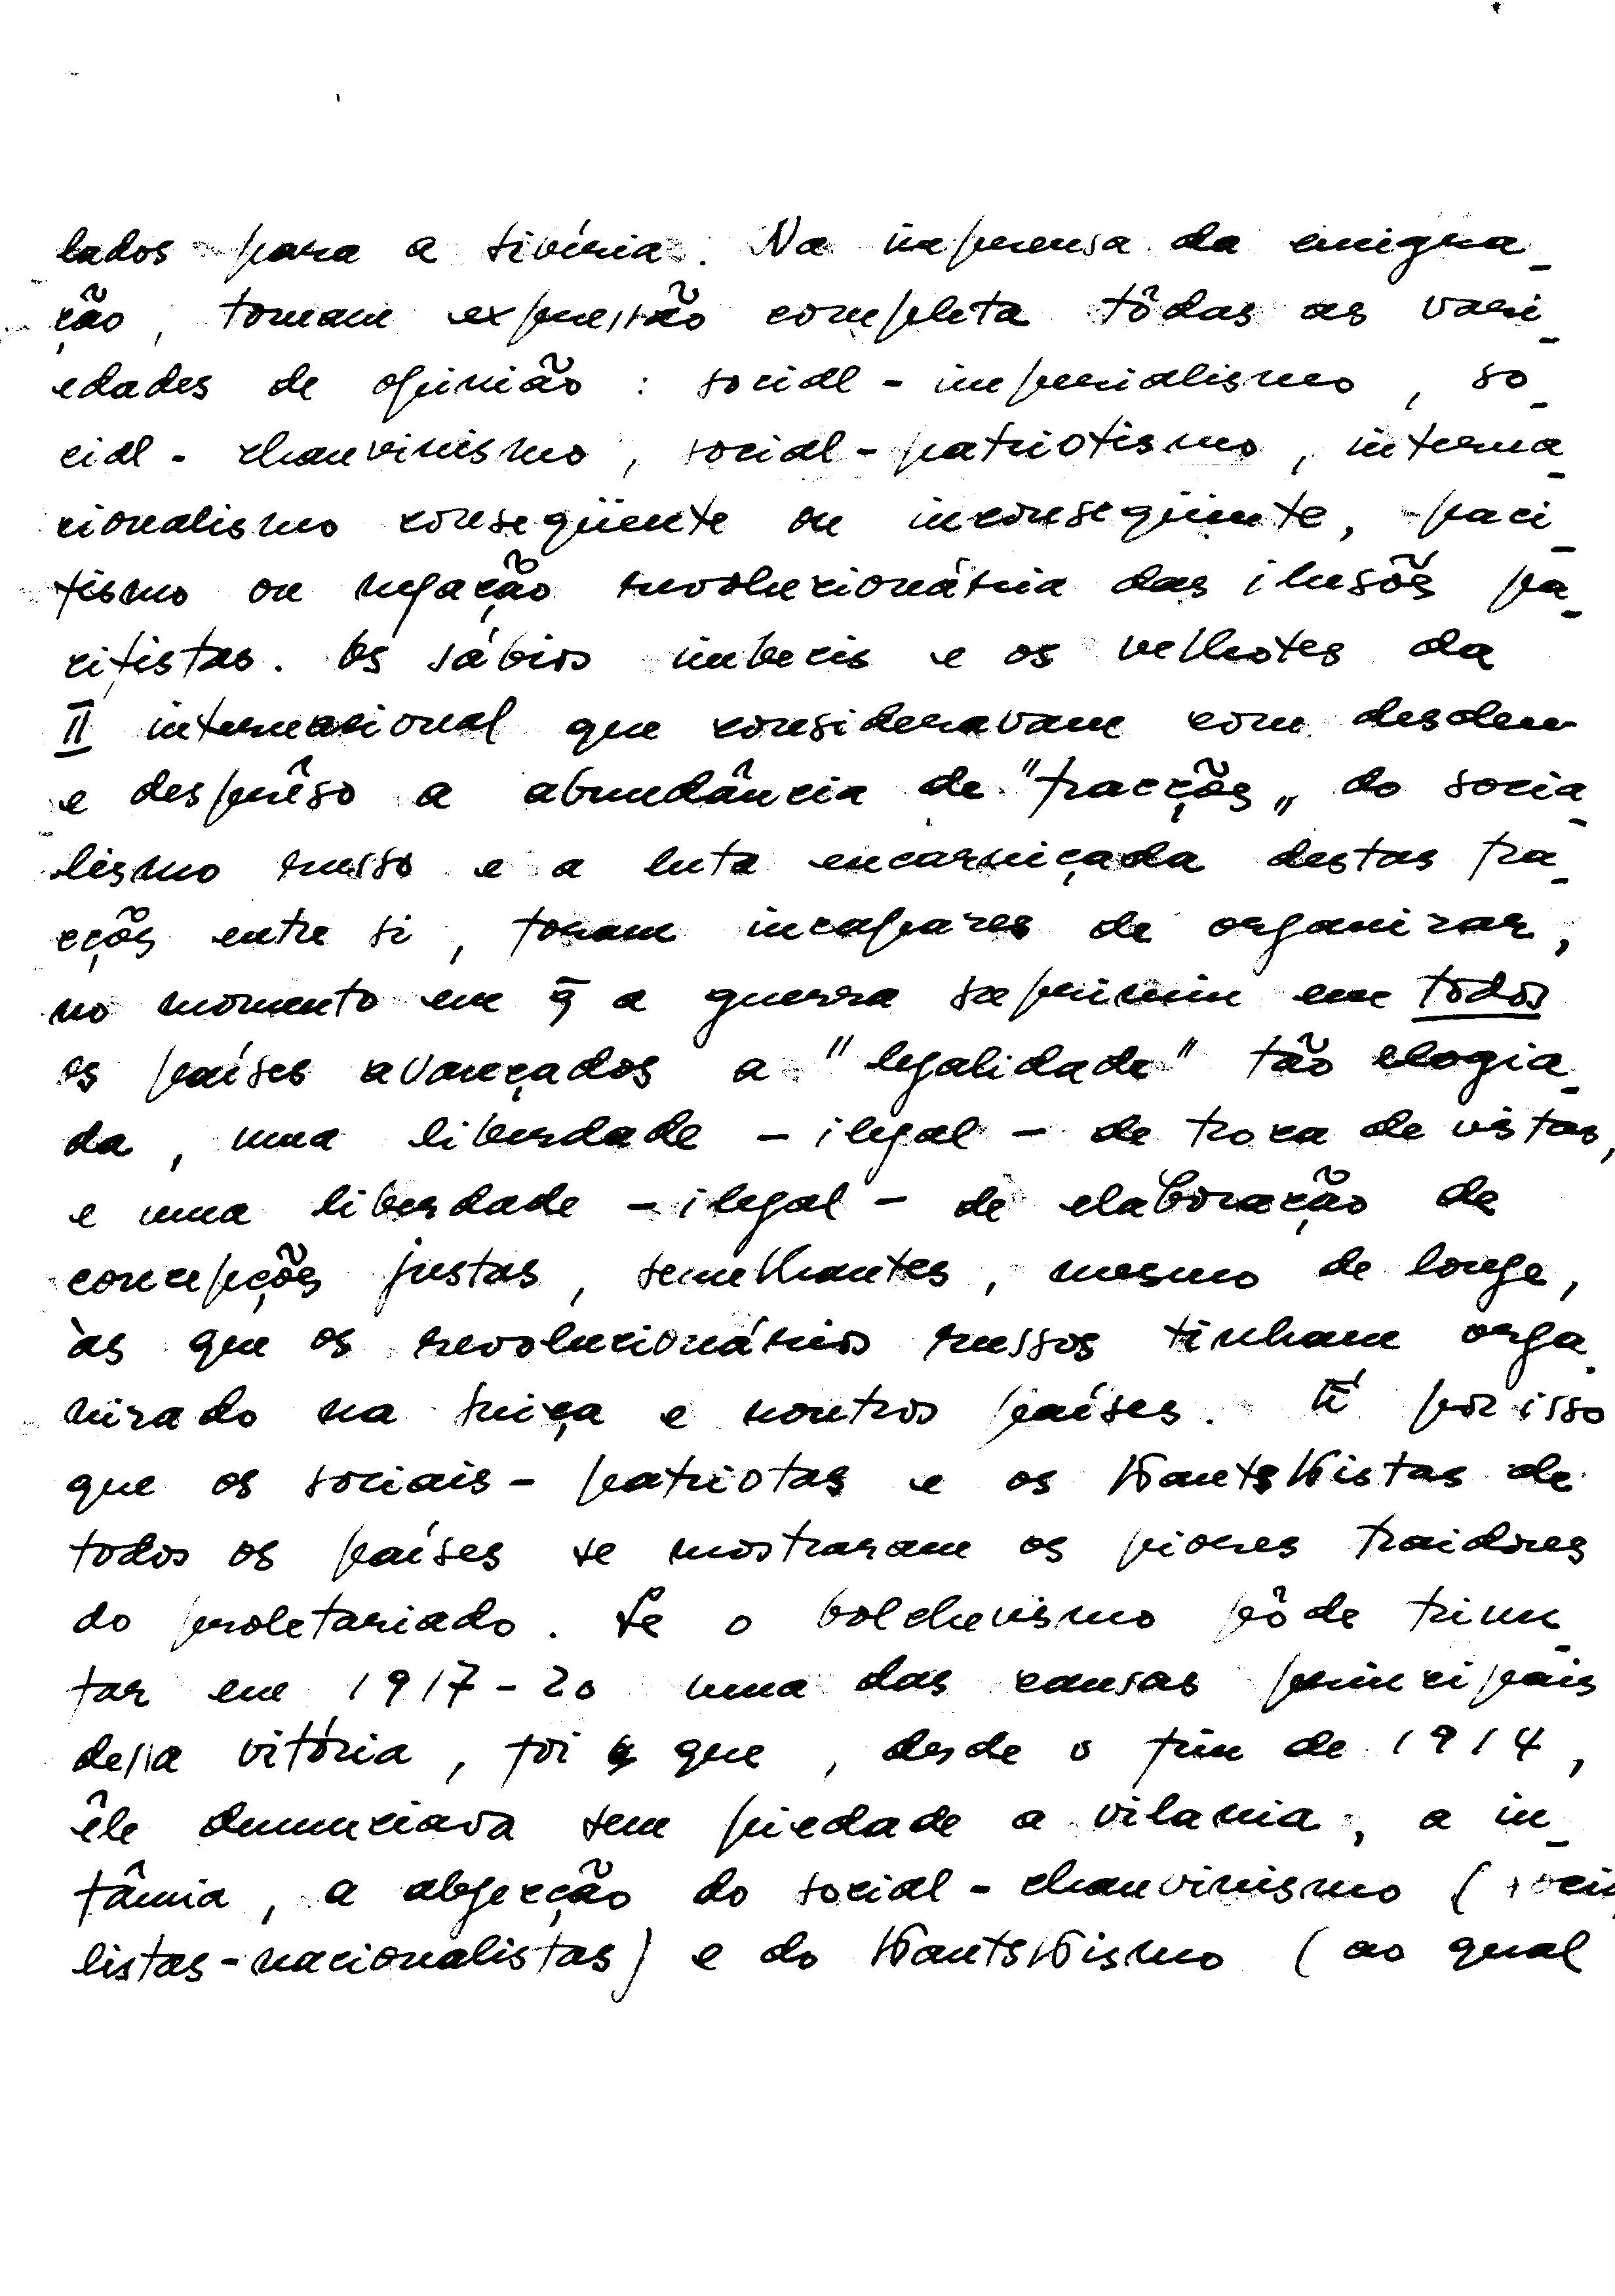 lados para a sibéria. Na imprensa da emigra_
ção, tomam expressão completa tôdas as vari_
edades de opinião : social - imperialismo, so_
cial - chauvinismo, social - patriotismo, interna_
cionalismo conseqüente ou inconseqüente, paci_
fismo ou negação revolucionária das ilusões pa_
cifistas. Os sábios imbecis e os velhotes da
II internacional que consideravam com desdem
e desprêso a abundância de "fracções" do socia_
lismo russo e a luta encarniçada destas fra_
cções entre si, foram incapazes de organizar,
no momento em q̄ a guerra suprimiu em todos
os países avançados a "legalidade" tão elogia_
da, uma liberdade - ilegal - de troca de vistas,
e uma liberdade - ilegal - de elaboração de
concepções justas, semelhantes, mesmo de longe,
às que os revolucionários russos tinham orga_
nizado na suiça e noutros países. É por isso
que os sociais - patriotas e os Kautskistas de
todos os países se mostraram os piores traidores
do proletariado. Se o bolchevismo pôde triun_
far em 1917 - 20 uma das causas principais
dessa vitória, foi que, desde o fim de 1914,
êle denunciava sem piedade a vilania, a in_
fâmia, a abjecção do social - chauvinismo (socia
listas - nacionalistas) e do Kautskismo (ao qual